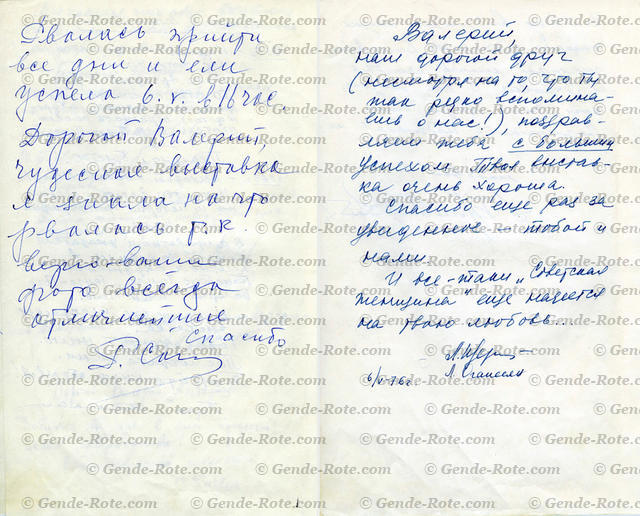 Рвалась прийти
все дни и еле
успела 6.V. в 16 час.
Дорогой Валерий,
чудесная выставка
я знала на что
рвалась т.к.
ваши
фото всегда
отличнейшие
Спасибо
Валерий,
наш дорогой друг
(несмотря на то, что ты
так редко вспомина-
ешь о нас!), поздрав-
ляем тебя с большим
успехом. Твоя выстав-
ка очень хороша.
Спасибо еще раз за
увиденное – тобой и
нами.
И все-таки „Советская
женщина" еще надеется
на твою любовь...
6/V-76г.
© Gende-Rote.com